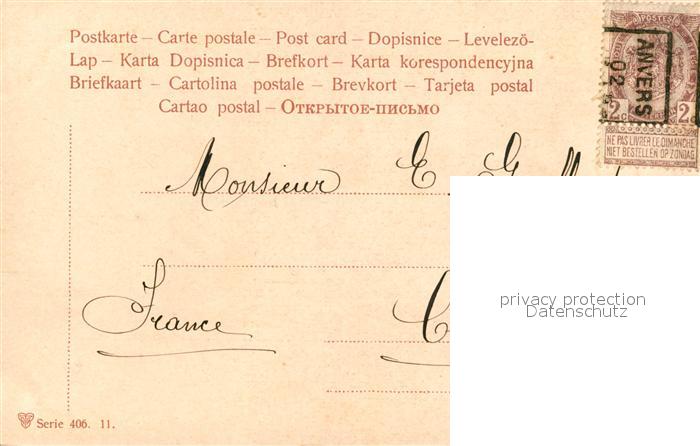 Postkarte – Carte postale – Post card – Dopisnice – Levelezö-
Lap – Karta Dopisnica – Brefkort – Karta korespondencyjna
Briefkaart – Cartolina postale – Brevkort – Tarjeta postal
Cartao postal – Открытое-письмо
POSTES
ANVERS
02
2 C 2
NE PAS LIVRER LE DIMANCHE
NIET BESTELLEN OP ZONDAG
Monsieur E.
France
privacy protection
Datenschutz
Serie 406. 11.